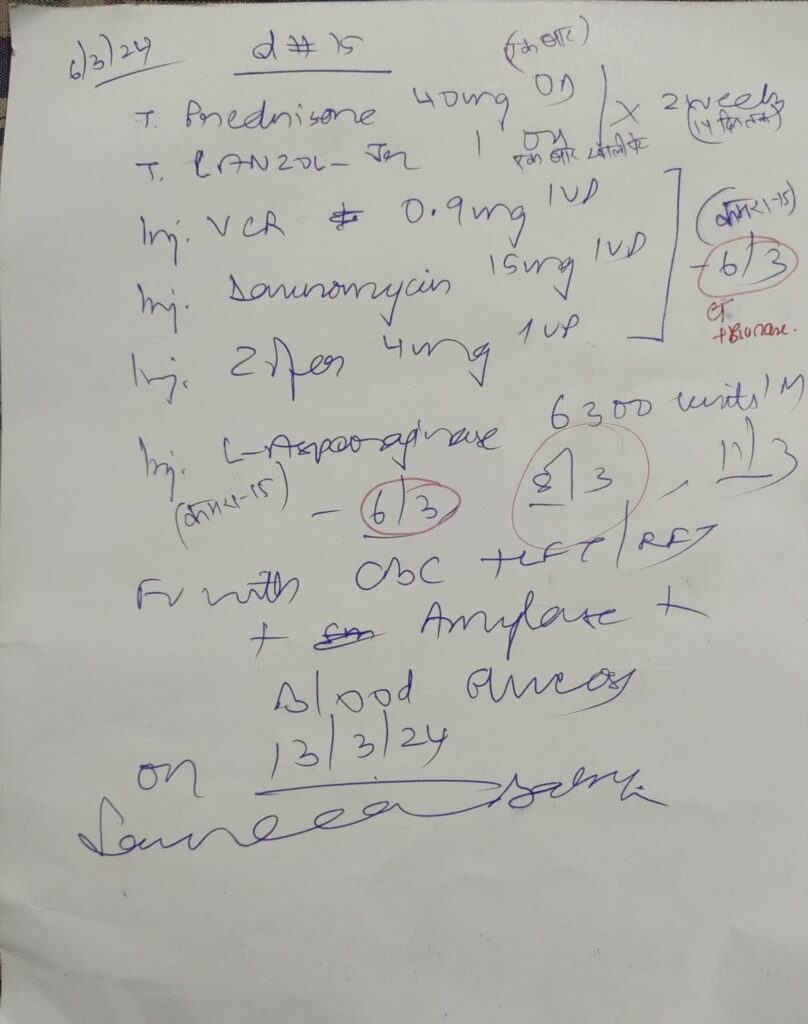 6/3/24 d # 15
(एक बार)
T. Prednisone 40mg OD
T. LANZOL-Jn 1 OD
x 2 weeks
(14 दिन तक)
एक बार खाली पेट
Inj. VCR 0.9mg IVP
Inj. Daunomycin 15mg IVP
Inj. Zofer 4mg IVP
(कमरा-15)
- 6/3
Inj. L-Asparaginase 6300 units IM
(कमरा-15) - 6/3, 8/3, 11/3
FU with CBC + LFT/RFT
+ Amylase +
Blood Glucose
on 13/3/24